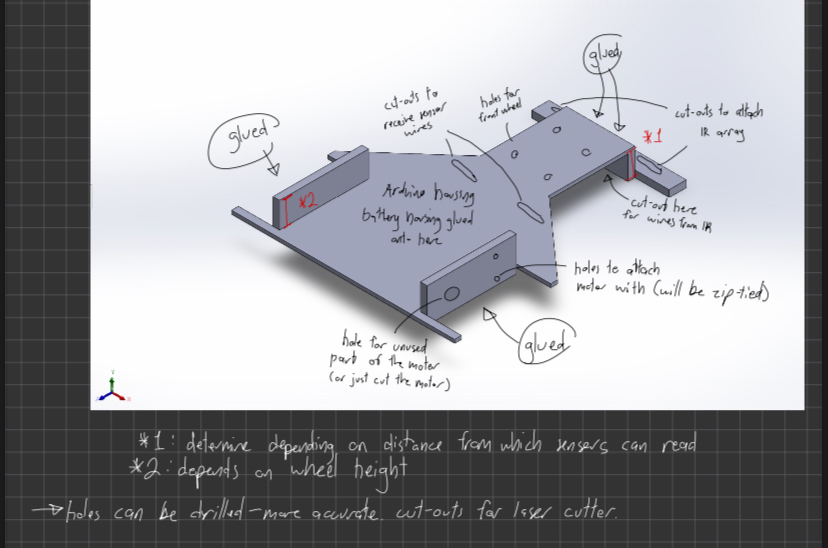 glued
cut-outs to
receive sensor
wires
holes for
front wheel
cut-outs to attach
IR array
*1
glued
*2
Arduino housing
battery housing glued
here
cut-out here
for wires from IR
holes to attach
motor with (will be zip-tied)
hole for unused
part of the motor
(or just cut the motor)
glued
*1: determine depending on distance from which sensors can read
*2: depends on wheel height
→ holes can be drilled - more accurate. cut-outs for laser cutter.